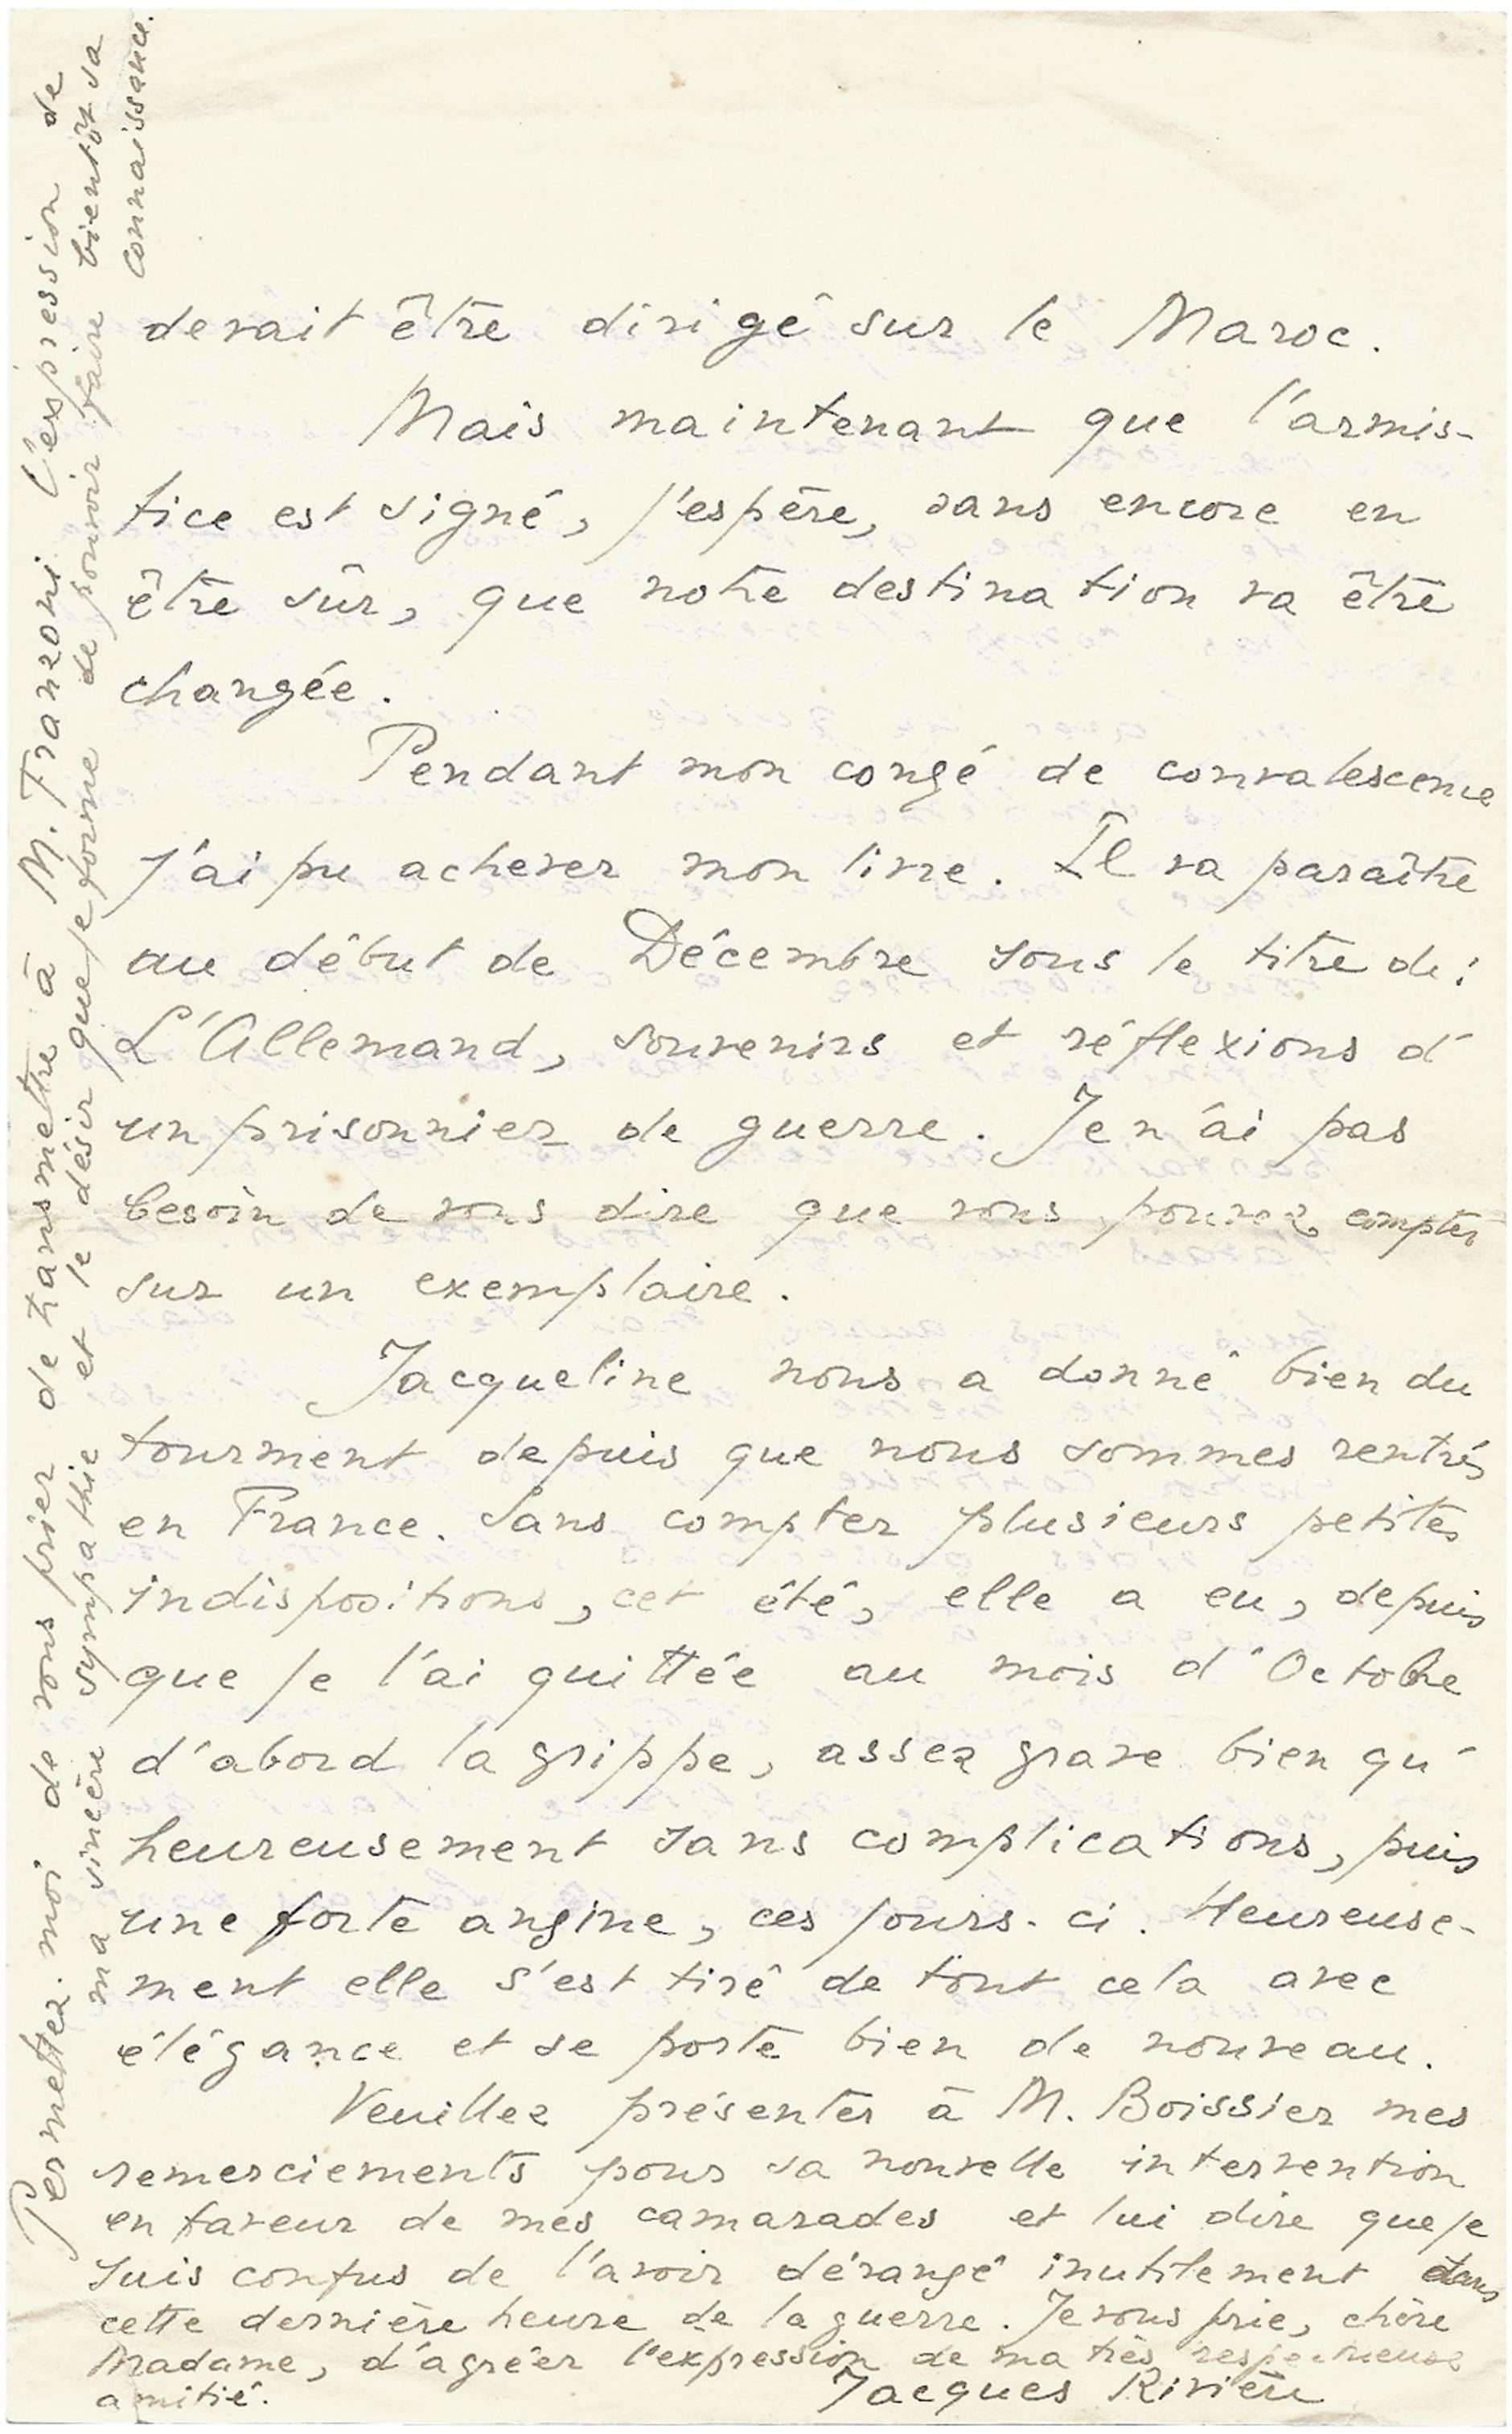 devait être dirigé sur le Maroc.
Mais maintenant que l'armis-
tice est signé, j'espère, sans encore en
être sûr, que notre destination va être
changée.
Pendant mon congé de convalescence
j'ai pu achever mon livre. Il va paraître
au début de Décembre sous le titre de :
L'Allemand, souvenirs et réflexions d'
un prisonnier de guerre. Je n'ai pas
besoin de vous dire que vous pouvez compter
sur un exemplaire.
Jacqueline nous a donné bien du
tourment depuis que nous sommes rentrés
en France. Sans compter plusieurs petites
indispositions, cet été, elle a eu, depuis
que je l'ai quittée au mois d'Octobre
d'abord la grippe, assez grave bien qu'
heureusement sans complications, puis
une forte angine, ces jours-ci. Heureuse-
ment elle s'est tiré de tout cela avec
élégance et se porte bien de nouveau.
Veuillez présenter à M. Boissier mes
remerciements pour sa nouvelle intervention
en faveur de mes camarades et lui dire que je
suis confus de l'avoir dérangé inutilement dans
cette dernière heure de la guerre. Je vous prie, chère
Madame, d'agréer l'expression de ma très respectueuse
amitié.
Jacques Rivière
Permettez-moi de vous prier de transmettre à M. Franzoni l'expression de
ma sincère sympathie et le désir que je forme de pouvoir faire bientôt sa
connaissance.